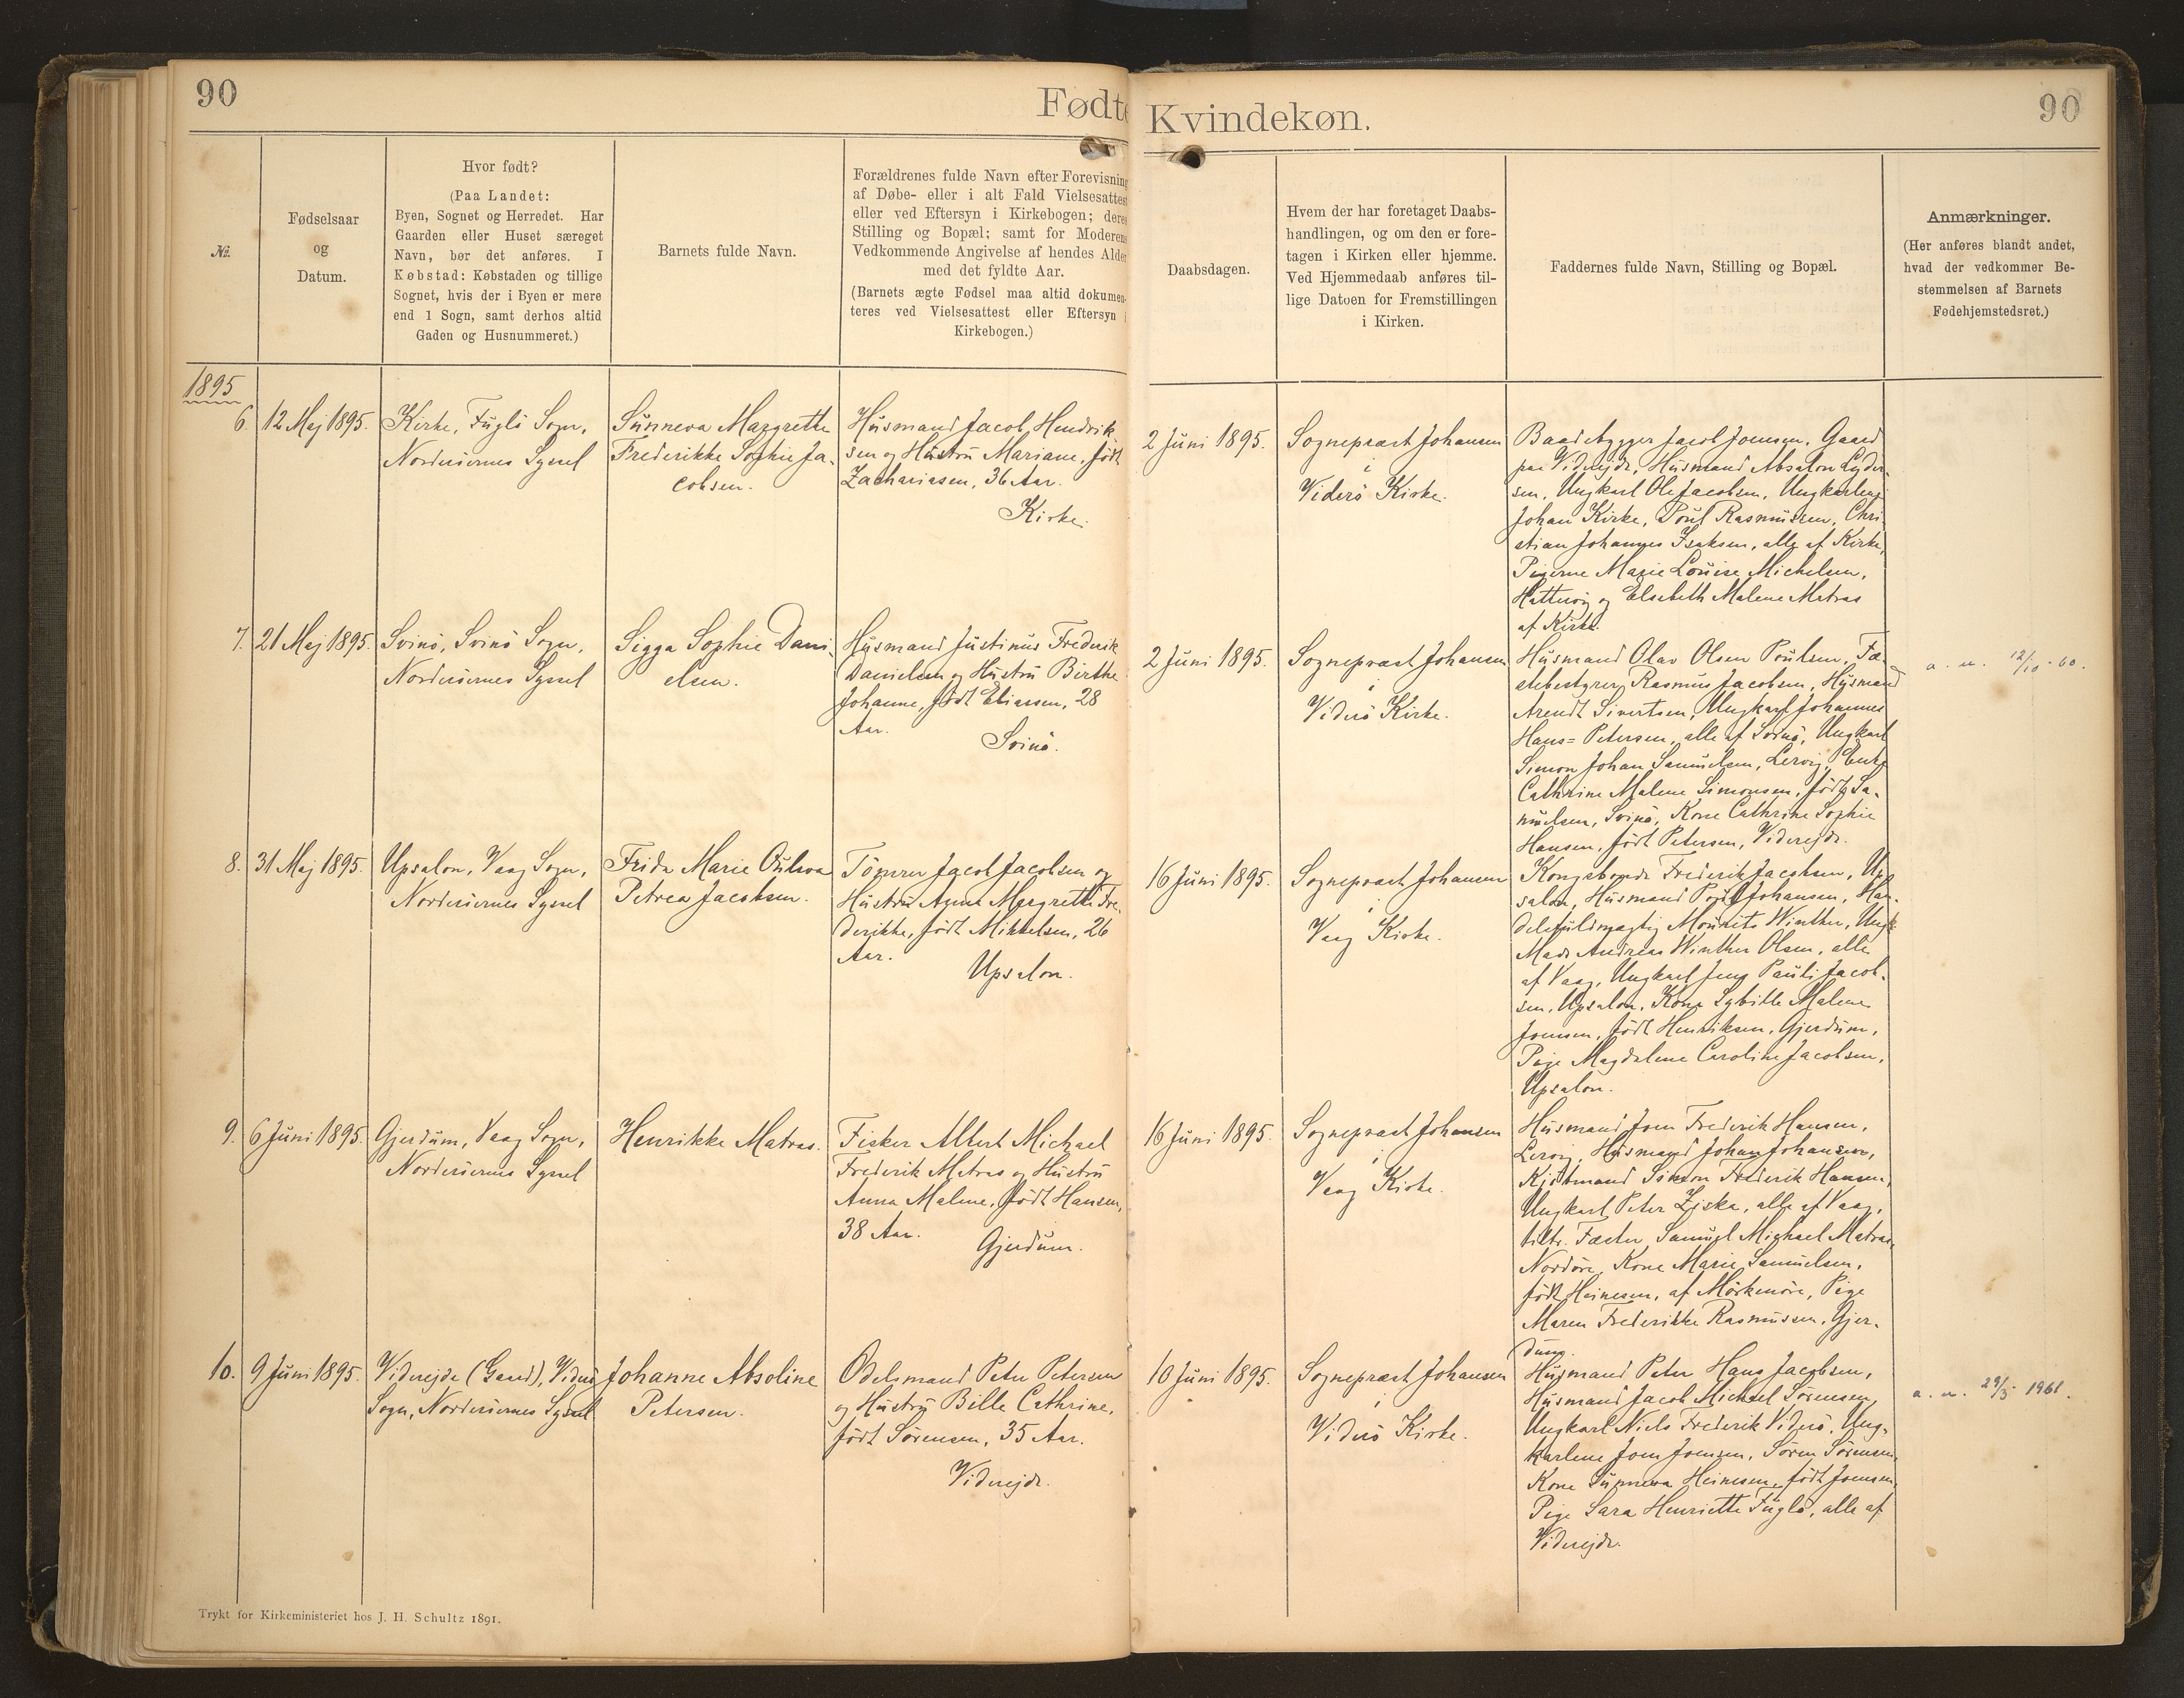 90
Fødte
Kvindekøn.
90
No.
Fødselsaar
og
Datum.
Hvor født?
(Paa Landet:
Byen, Sognet og Herredet. Har
Gaarden eller Huset særeget
Navn, bør det anføres. I
Købstad: Købstaden og tillige
Sognet, hvis der i Byen er mere
end 1 Sogn, samt derhos altid
Gaden og Husnummeret.)
Barnets fulde Navn.
Forældrenes fulde Navn efter Forevisning
af Døbe- eller i alt Fald Vielsesattest
eller ved Eftersyn i Kirkebogen; deres
Stilling og Bopæl; samt for Moderens
Vedkommende Angivelse af hendes Alder
med det fyldte Aar.
(Barnets ægte Fødsel maa altid dokumen-
teres ved Vielsesattest eller Eftersyn i
Kirkebogen.)
Daabsdagen.
Hvem der har foretaget Daabs-
handlingen, og om den er fore-
tagen i Kirken eller hjemme.
Ved Hjemmedaab anføres til-
lige Datoen for Fremstillingen
i Kirken.
Faddernes fulde Navn, Stilling og Bopæl.
Anmærkninger.
(Her anføres blandt andet,
hvad der vedkommer Be-
stemmelsen af Barnets
Fødehjemstedsret.)
1895
6.
12 Maj 1895.
Kirke, Fuglö Sogn,
Norderöernes Syssel
Sunneva Margrethe
Frederikke Sophie Ja-
cobsen.
Husmand Jacob Hendrik-
sen og Hustru Mariane, født
Zachariasen, 36 Aar.
Kirke.
2 Juni 1895.
Sognepræst Johansen
i
Viderö Kirke.
Baadebygger Jacob Joensen, Gaard
paa Viderejde, Husmand Absalon Lyder-
sen, Ungkarl Ole Jacobsen, Ungkarlene
Johan Kirke, Poul Rasmussen, Chri-
stian Johannes Isaksen, alle af Kirke,
Pigerne Marie Louise Michelsen,
Hattervig og Elsebeth Malene Matras
af Kirke.
7.
21 Maj 1895.
Svinö, Svinö Sogn,
Norderöernes Syssel
Sigga Sophie Dani-
elsen.
Husmand Justinus Frederik
Danielsen og Hustru Birthe
Johanne, født Eliassen, 28
Aar.
Svinö.
2 Juni 1895.
Sognepræst Johansen
i
Viderö Kirke.
Husmand Olav Olsen Poulsen, Fæ-
stebestyrer Rasmus Jacobsen, Husmand
Arendt Sivertsen, Ungkarl Johannes
Hans-Petersen, alle af Svinö, Ungkarl
Simon Johan Samuelsen, Lervig, Enke
Cathrine Malene Simonsen, født Sa-
muelsen, Svinö, Kone Cathrine Sophie
Hansen, født Petersen, Viderejde.
a. u. 12/10-60.
8.
31 Maj 1895.
Upsalon, Vaag Sogn,
Norderöernes Syssel
Frida Marie
Petrea Jacobsen.
Tömrer Jacob Jacobsen og
Hustru Margrethe Fre-
derikke, født Mikkelsen, 26
Aar.
Upsalon.
16 Juni 1895.
Sognepræst Johansen
i
Vaag Kirke.
Kongsbonde Frederik Jacobsen, Up-
salon, Husmand Poul Johansen, Han-
delsfuldmægtig Mourits Winther, Ungk.
Mads Andreas Winther Olsen, alle
af Vaag, Ungkarl Jens Pauli Jacob-
sen, Upsalon, Kone Sybille Malene
Joensen, født Henriksen, Gjerdum,
Pige Magdalene Caroline Jacobsen,
Upsalon.
9.
6 Juni 1895.
Gjerdum, Vaag Sogn,
Norderöernes Syssel
Henrikke Matras.
Fisker Albert Michael
Frederik Matras og Hustru
Anna Malene, født Hansen,
38 Aar.
Gjerdum.
16 Juni 1895.
Sognepræst Johansen
i
Vaag Kirke.
Husmand Joen Frederik Hansen,
Lervig, Husmand Johan Johansen,
Kjöbmand Simon Frederik Hansen,
Ungkarl Peter Ziska, alle af Vaag,
tiltr. Fæster Samuel Michael Matras,
Nordöre, Kone Marie Samuelsen,
født Heinesen, af Mörkenöre, Pige
Maren Frederikke Rasmussen, Gjer-
dum.
10.
9 Juni 1895.
Viderejde (Gaard), Viderö
Sogn, Norderöernes Syssel
Johanne Absoline
Petersen.
Odelsmand Peter Petersen
og Hustru Bille Cathrine,
født Sörensen, 35 Aar.
Viderejde.
10 Juni 1895.
Sognepræst Johansen
i
Viderö Kirke.
Husmand Peter Hans Jacobsen,
Husmand Jacob Michael Sörensen,
Ungkarl Niels Frederik Viderö, Ung-
karlene Joen Joensen, Sören Sörensen,
Kone Sunneva Heinesen, født Joensen,
Pige Sara Henriette Fuglö, alle af
Viderejde.
a. u. 29/5 1961.
Trykt for Kirkeministeriet hos J. H. Schultz 1891.